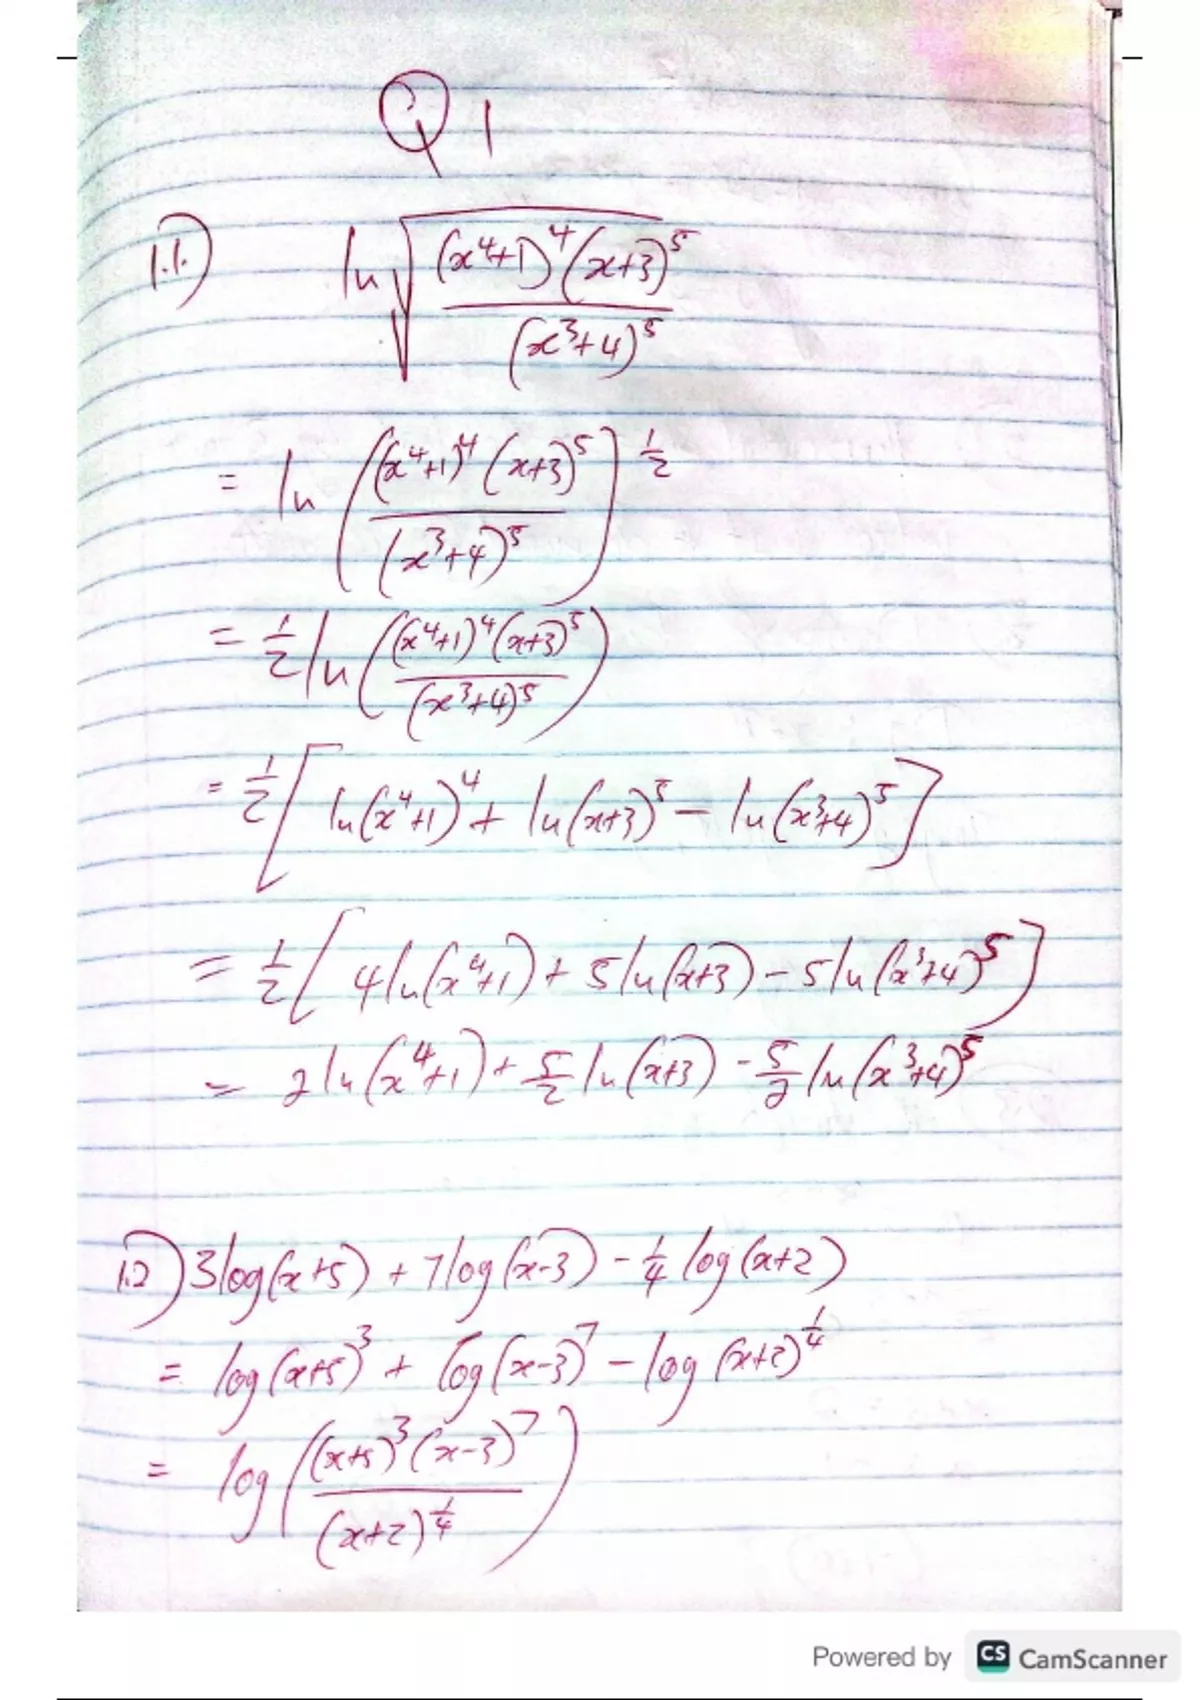 Q1
1.1) ln √((x⁴+1)⁴(x+3)⁵ / (x³+4)⁵)
= ln ((x⁴+1)⁴(x+3)⁵ / (x³+4)⁵)^(1/2)
= 1/2 ln ((x⁴+1)⁴(x+3)⁵ / (x³+4)⁵)
= 1/2 [ln(x⁴+1)⁴ + ln(x+3)⁵ - ln(x³+4)⁵]
= 1/2 [4ln(x⁴+1) + 5ln(x+3) - 5ln(x³+4)⁵]
= 2ln(x⁴+1) + 5/2 ln(x+3) - 5/2 ln(x³+4)⁵
1.2) 3log(x+5) + 7log(x-3) - 1/4 log(x+2)
= log(x+5)³ + log(x-3)⁷ - log(x+2)^(1/4)
= log ((x+5)³(x-3)⁷ / (x+2)^(1/4))
Powered by CS CamScanner